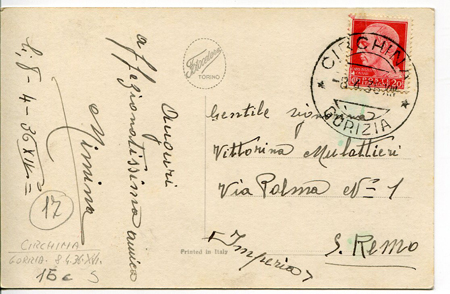 Auguri
affezionatissima amica
Mimina
lì, 7-4-36 XIV=
TORINO
CIRCHINA
-8.4.36.XIV
GORIZIA
20
Gentile Signorina
Vittorina Mulattieri
Via Palma Nº 1
S. Remo
(Imperia)
Printed in Italy
17
CIRCHINA
GORIZIA. 8.4.36.XIV.
15 c S